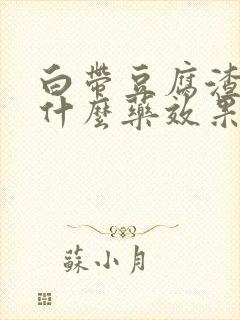 白帶豆腐渣
什麼藥效果
蘇小月